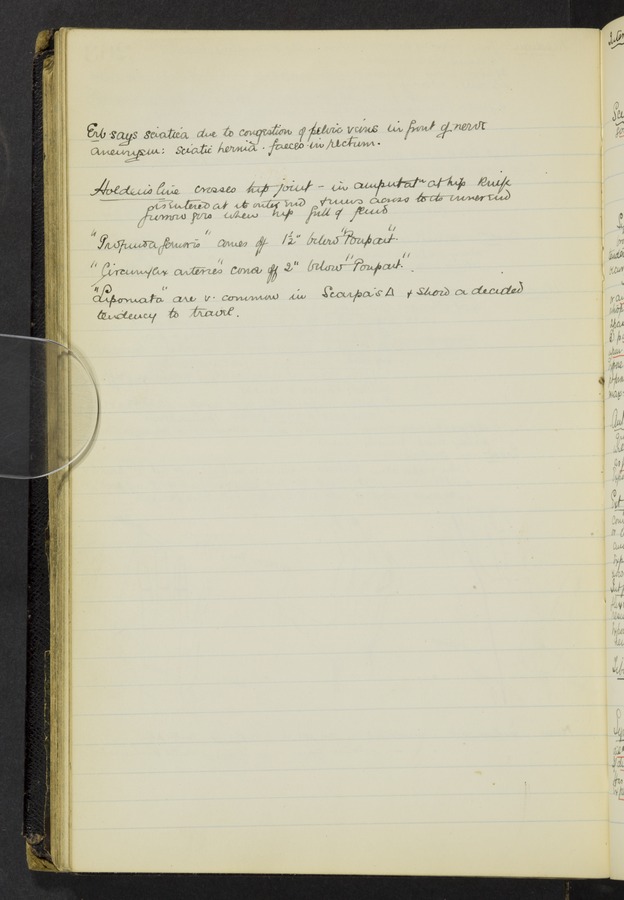 Erb says sciatica due to congestion of pelvic veins in front of nerve
aneurysm: sciatic hernia. faeces in rectum.
Holden's line crosses hip joint - in amputatn at hip knife
is entered at its outer end & runs across to its inner end
furrow goes when hip full of fluid
"Profunda femoris" comes off 1½" below "Poupart".
"Circumflex arteries" come off 2" below "Poupart".
"Lipomata" are v. common in Scarpa's Δ & show a decided
tendency to travel.